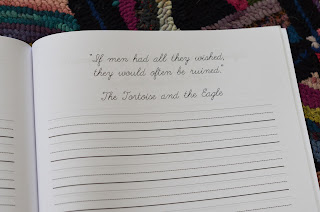 "If men had all they wished,
they would often be ruined."
The Tortoise and the Eagle